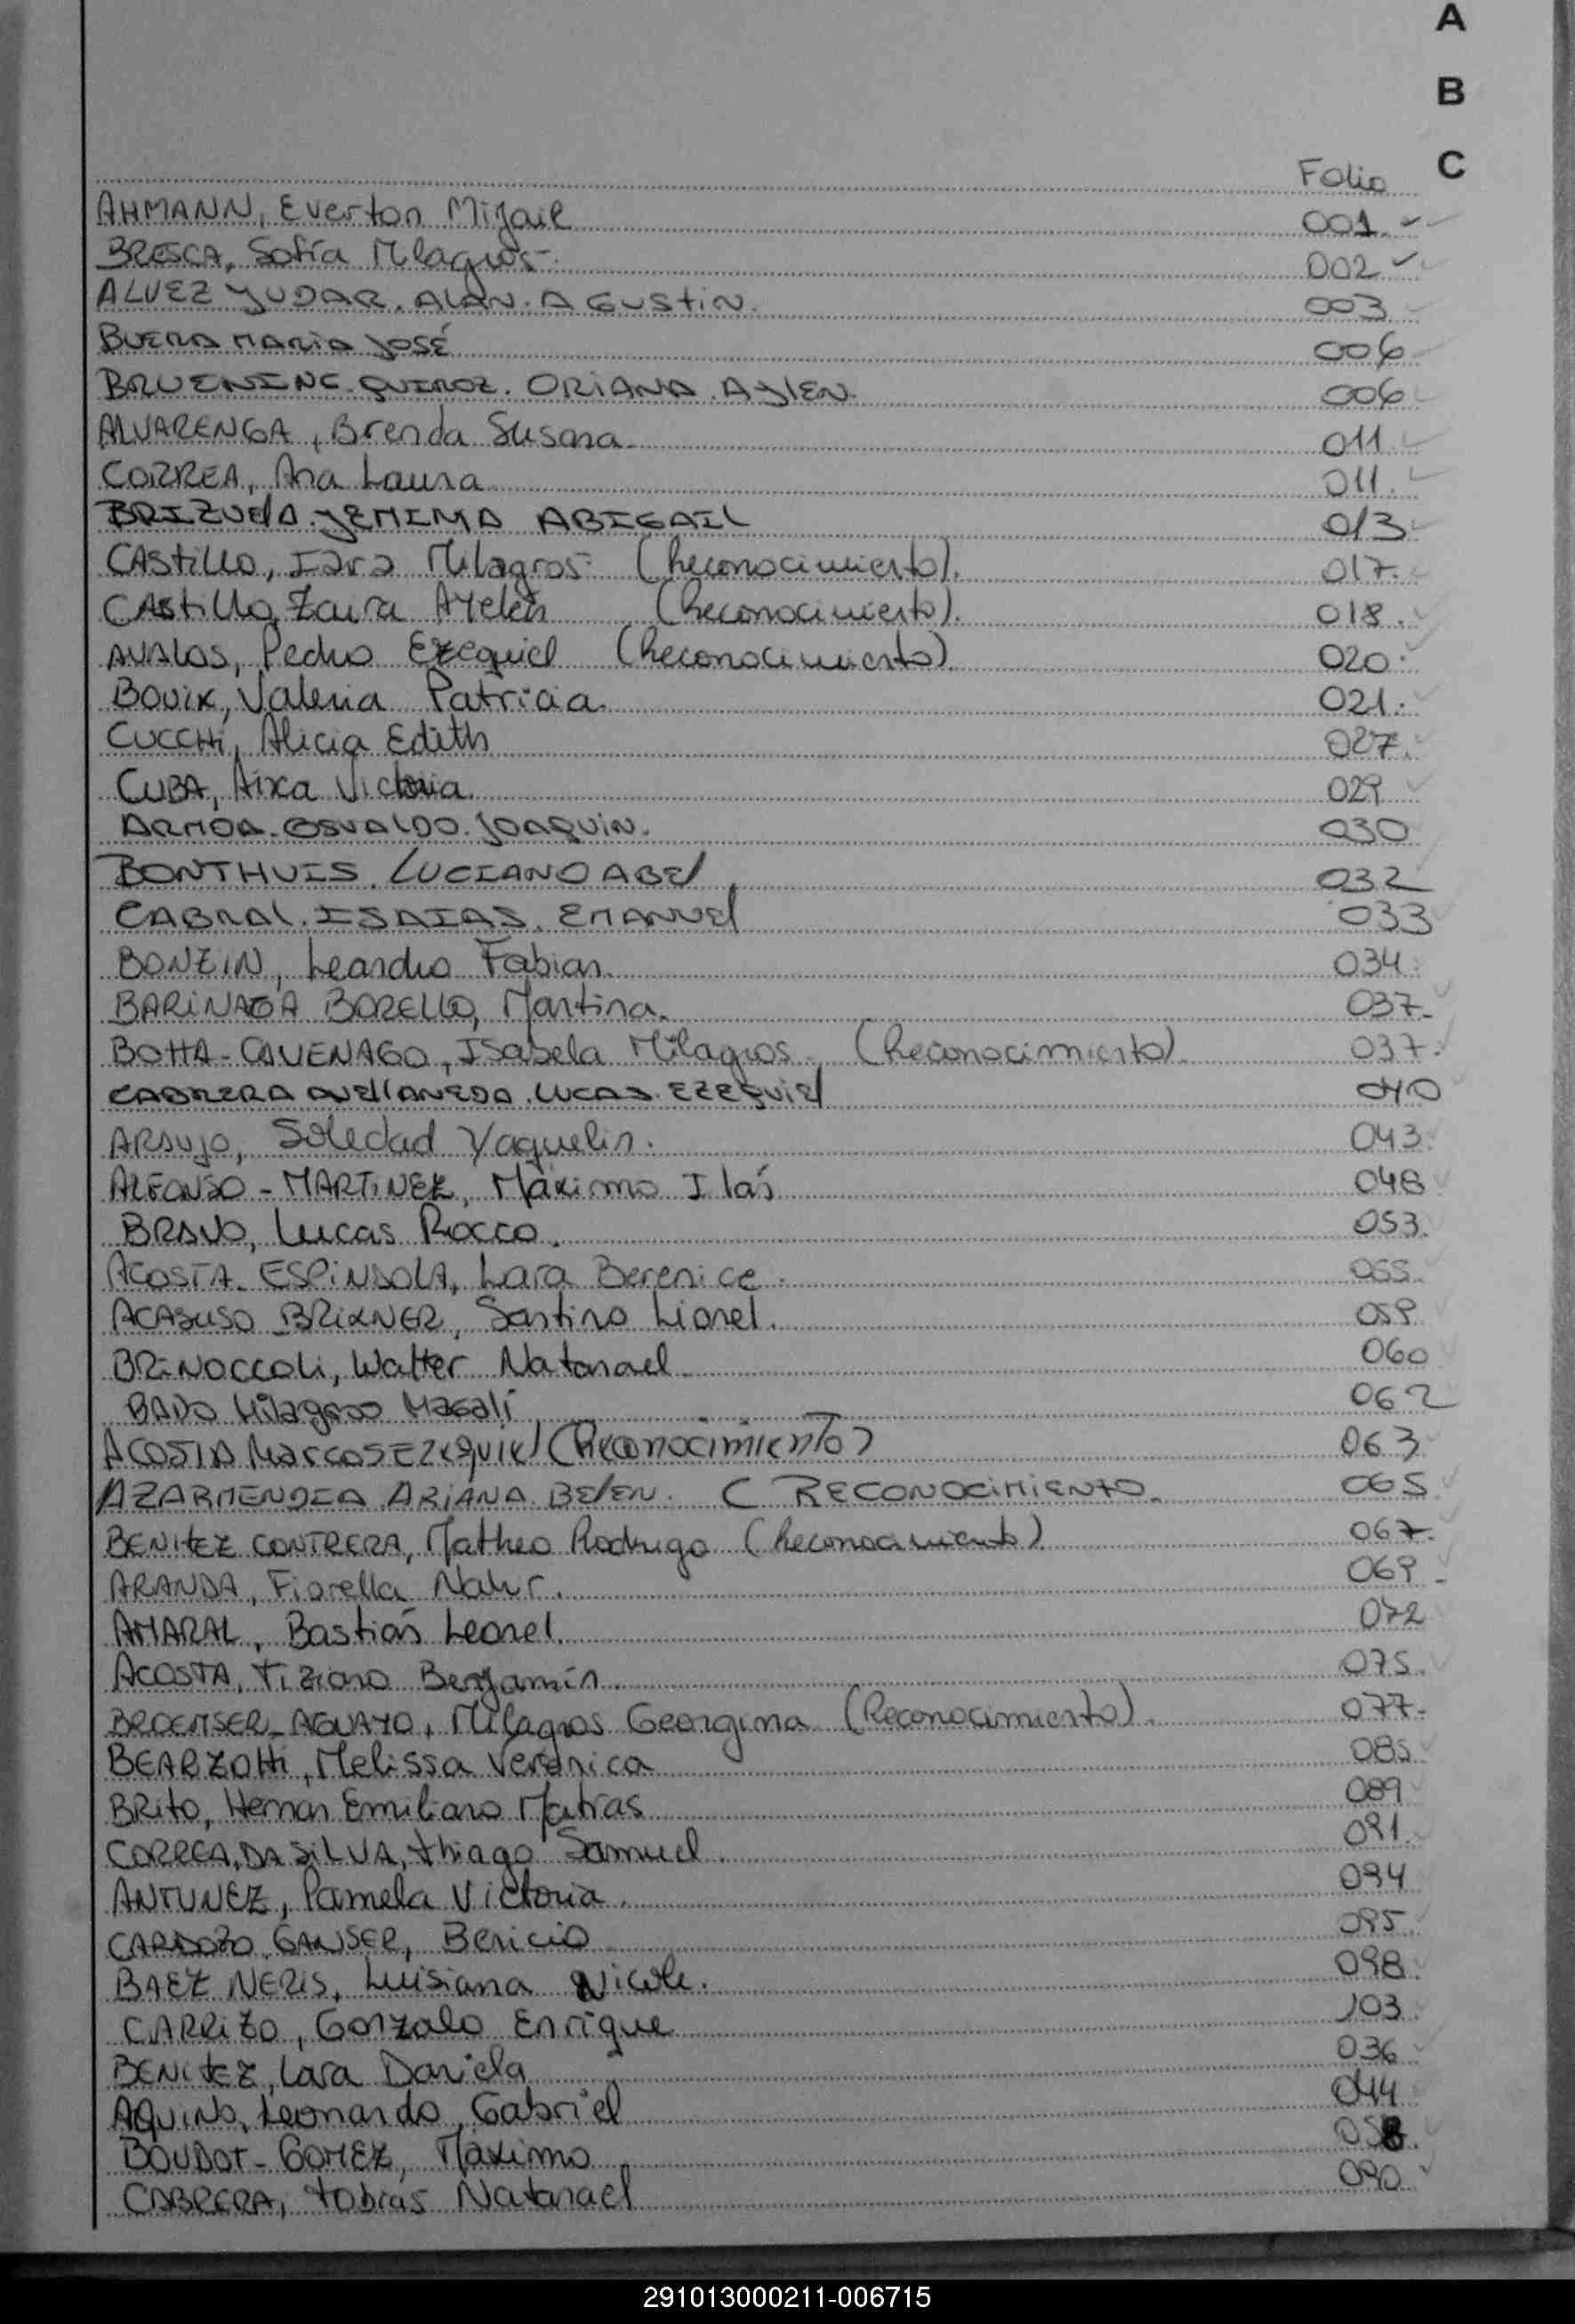 A
B
C
Folio
AHMANN, Everton Mijail 001.
BRESCA, Sofía Milagros-. 002
ALVEZ YUDAR. ALAN. AGUSTIN. 003
BUERA MARIA JOSÉ 006
BRUENING. QUIROZ. ORIANA. AYLEN. 006
ALVARENGA, Brenda Susana. 011
CORREA, Ana Laura 011.
BRIZUELA. JEMIMA ABIGAIL 013
CASTILLO, Iara Milagros- (Reconocimiento). 017.
CASTILLO, Zaira Ayelén (Reconocimiento). 018.
AVALOS, Pedro Ezequiel (Reconocimiento). 020.
BOVIK, Valeria Patricia. 021.
CUCCHI, Alicia Edith 027.
CUBA, Aixa Victoria. 029
ARMOA. OSVALDO. JOAQUIN. 030
BONTHUIS. LUCIANO ABEL 032
CABRAL. ISAIAS. EMANUEL 033
BONZIN, Leandro Fabian. 034.
BARINAGA BORELLO, Martina. 037.
BOTTA-CAVENAGO, Isabela Milagros. (Reconocimiento). 037.
CABRERA AVELLANEDA. LUCAS. EZEQUIEL 040
ARAUJO, Soledad Yaquelin. 043.
ALFONSO - MARTINEZ, Máximo 048
BRAVO, Lucas Rocco. 053.
ACOSTA. ESPINDOLA, Lara Berenice. 055.
ACASUSO BRIXNER, Santino Lionel. 059.
BRINOCCOLI, Walter Natanael. 060
BADO Milagros Magalí 062
ACOSTA Marcos Ezequiel (Reconocimiento) 063
AZARMENDIA ARIANA BELEN. ( RECONOCIMIENTO. 065
BENITEZ CONTRERA, Matheo Rodrigo (Reconocimiento). 067.
ARANDA, Fiorella 069.
AMARAL, Bastián Leonel. 072
ACOSTA, Tiziano Benjamín. 075.
BROEMSER-AGUAYO, Milagros Georgina (Reconocimiento). 077.
BEARZOTTI, Melissa Verónica 085
BRITO, Hernan Emiliano Matías 089
CORREA, DA SILVA, Thiago Samuel. 091.
ANTUNEZ, Pamela Victoria. 094
CARDOZO GANSER, Benicio 095.
BAEZ NERIS, Luisiana Nicole. 098.
CARRIZO, Gonzalo Enrique 103
BENITEZ, Lara Daniela 036
AQUINO, Leonardo, Gabriel 044
BOUDOT-GOMEZ, Máximo 058.
CABRERA, Tobías Natanael 090.
291013000211-006715